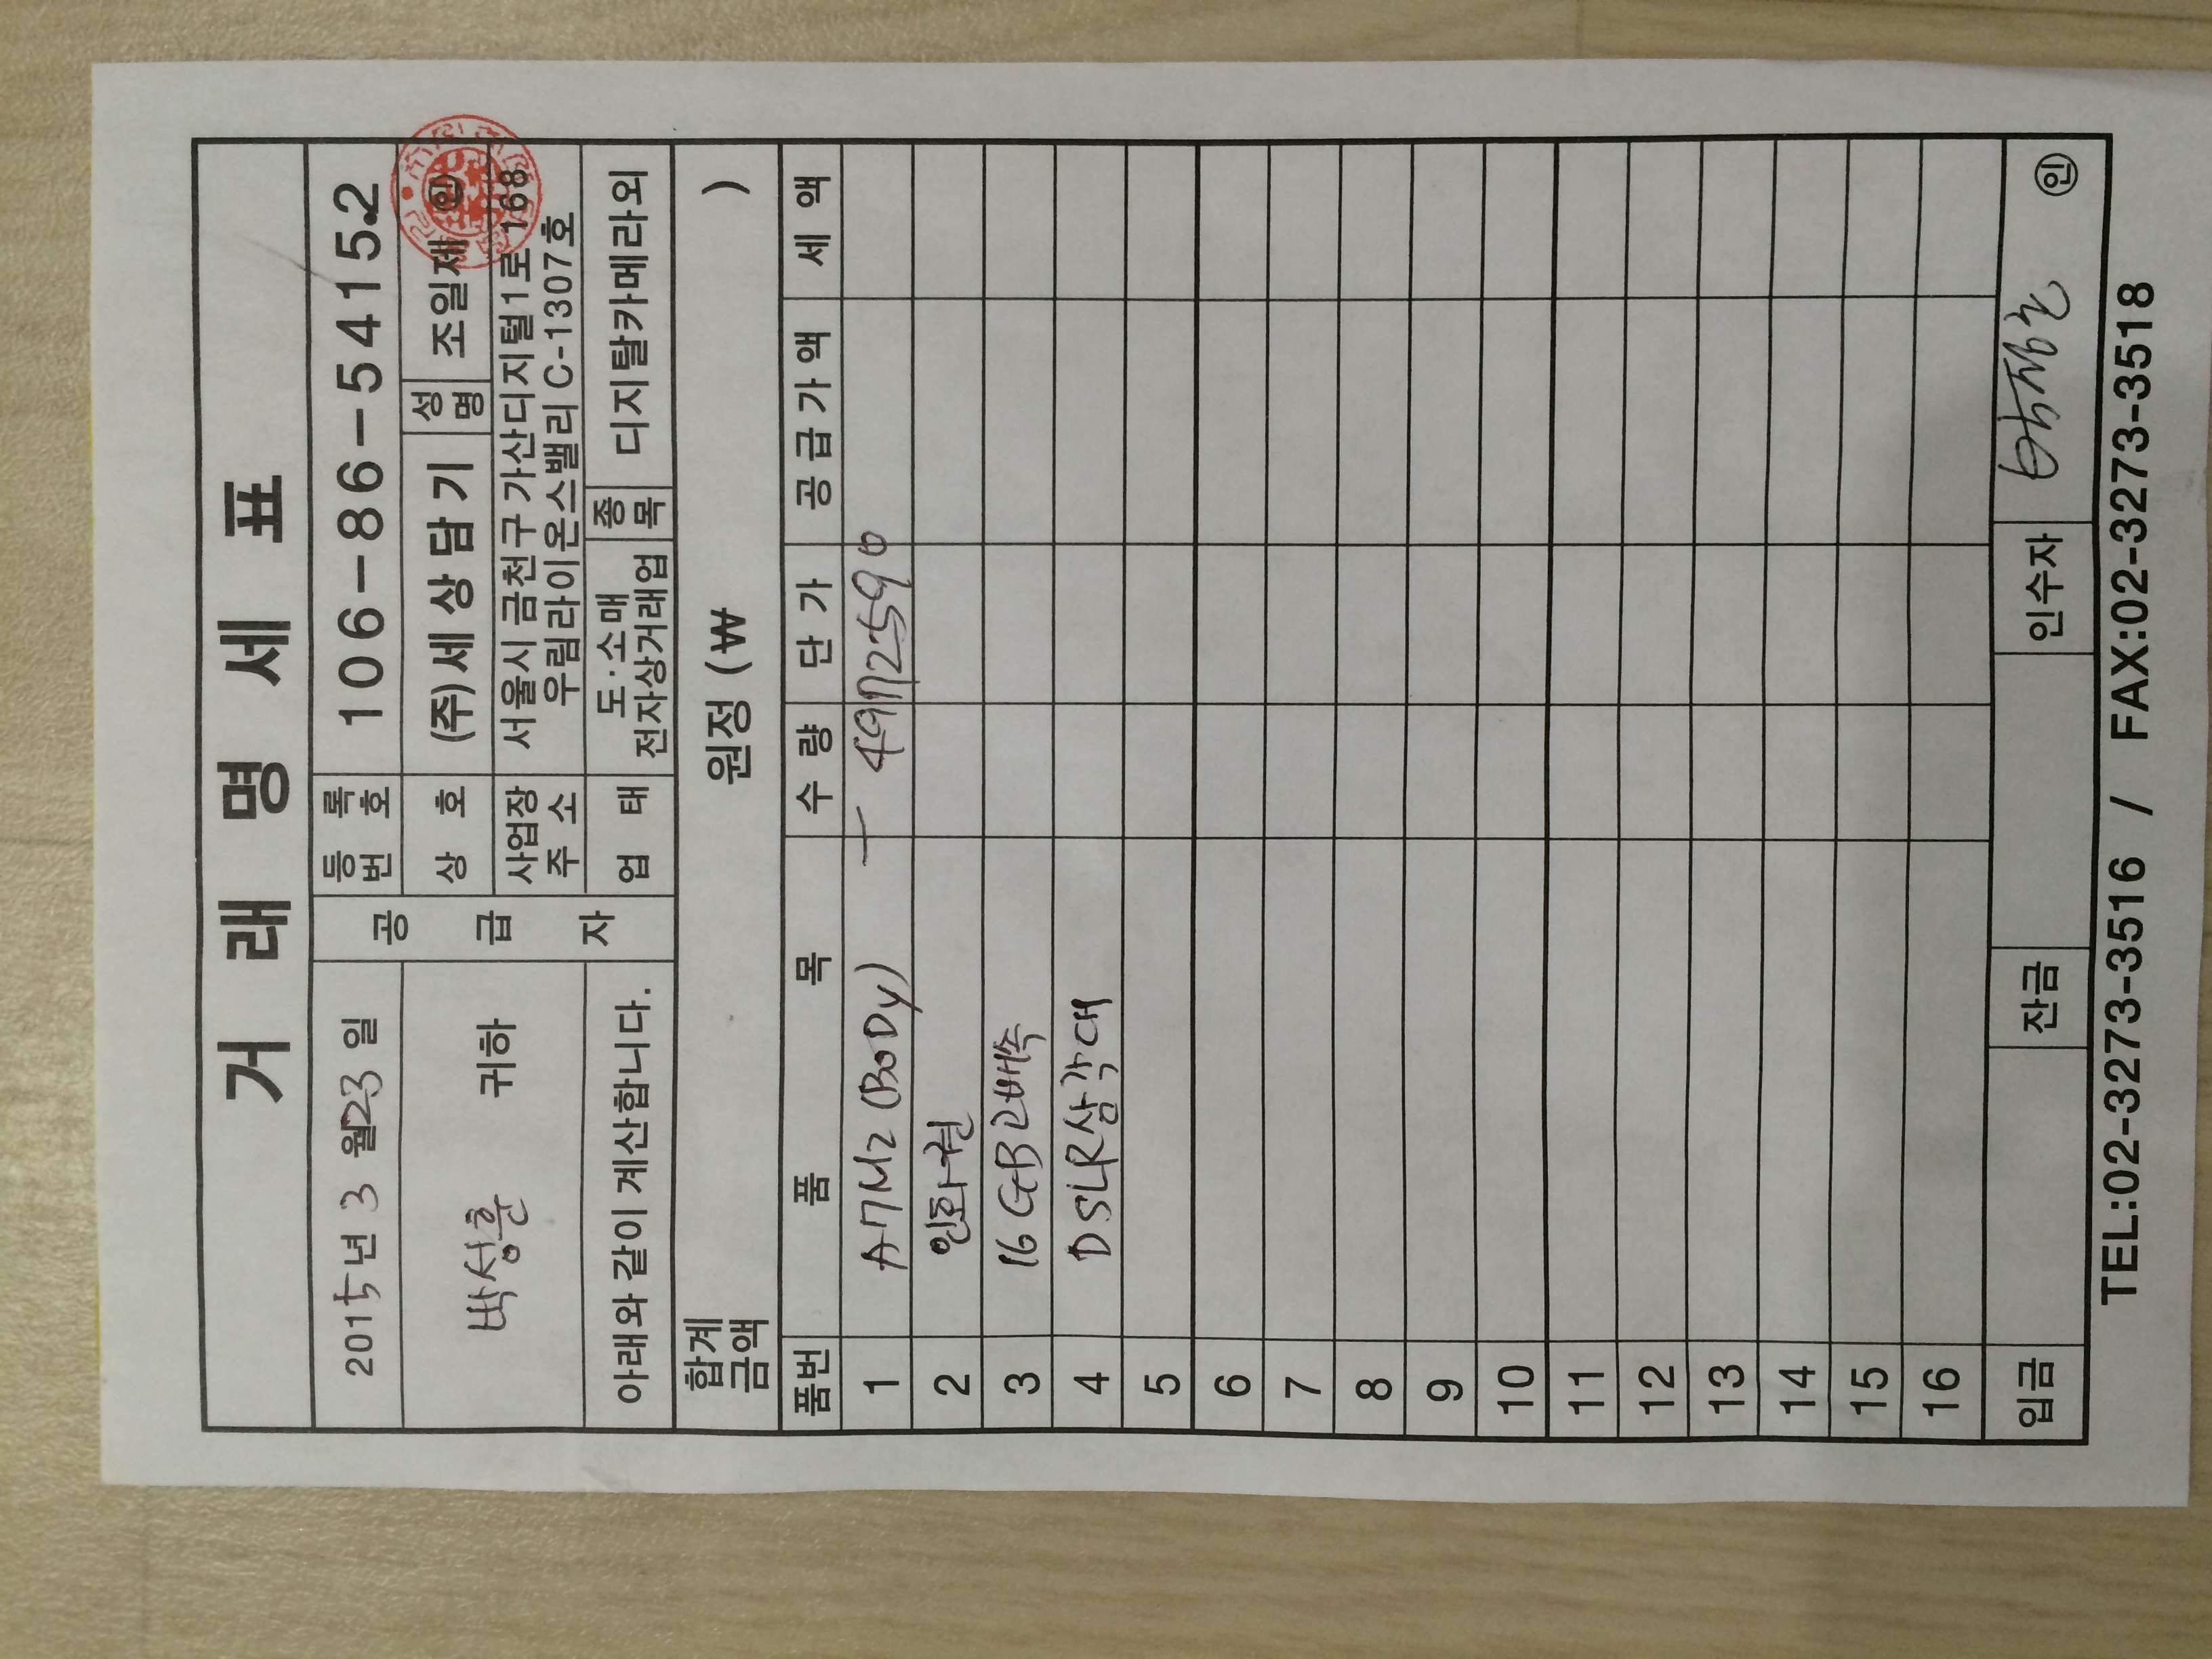 거래명세표
2015년 3월 23일
박성훈 귀하
아래와 같이 계산합니다.
공급자
등록번호 106-86-54152
상호 (주)세상담기 성명 조일제 ㊞
사업장주소 서울시 금천구 가산디지털1로 168
우림라이온스밸리 C-1307호
업태 도·소매 전자상거래업 종목 디지탈카메라외
합계금액 원정 (₩ )
품번 품목 수량 단가 공급가액 세액
1 A7M2 (BoDy) 1 4972590
2 인화권
3 16GB 2배속
4 DSLR삼각대
5
6
7
8
9
10
11
12
13
14
15
16
입금 잔금 인수자 ㊞
TEL:02-3273-3516 / FAX:02-3273-3518